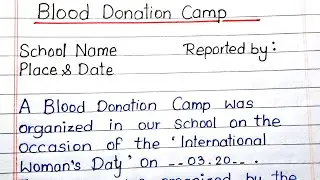 Blood Donation Camp
School Name Reported by:
Place & Date
A Blood Donation Camp was
organized in our school on the
occasion of the 'International
Woman's Day' on --.03.20-- .
organized by the